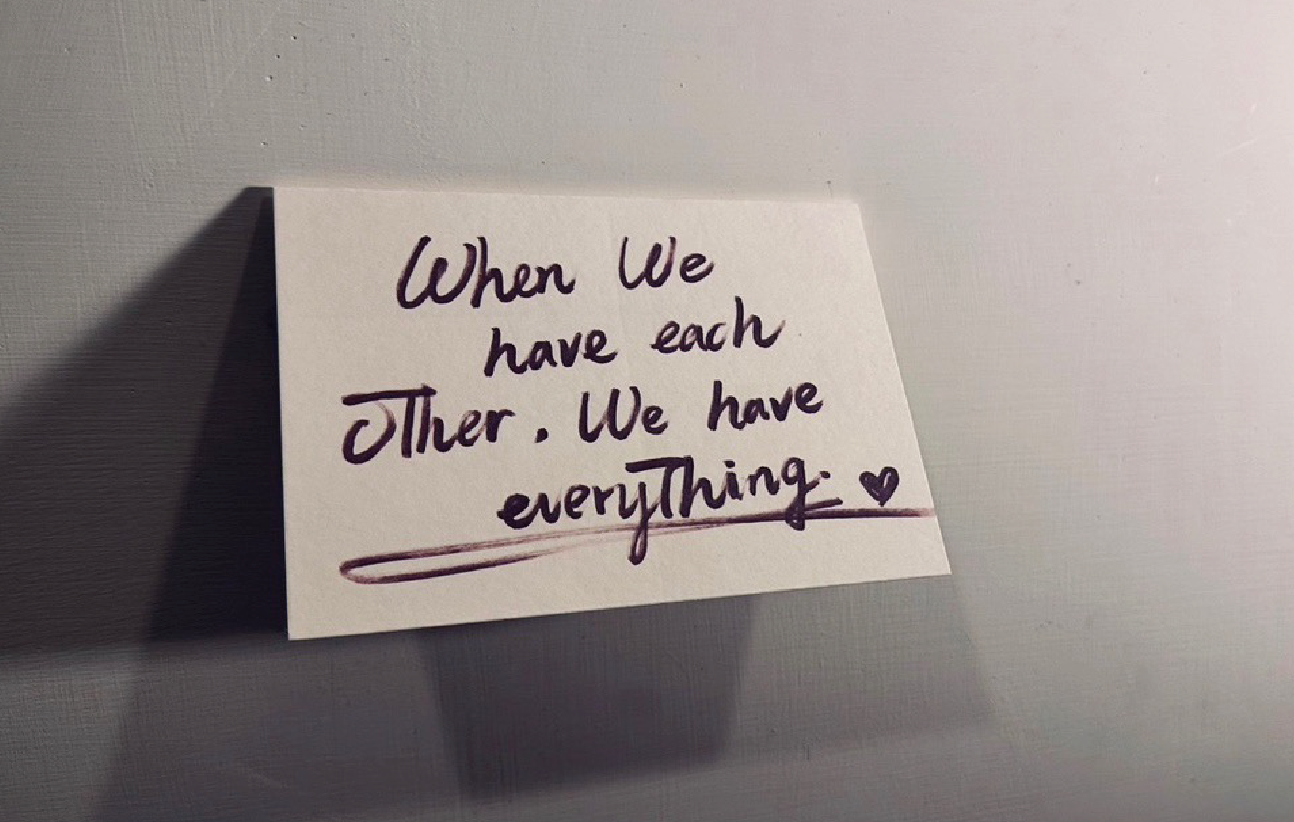 When We
have each
other. We have
everything. ♥